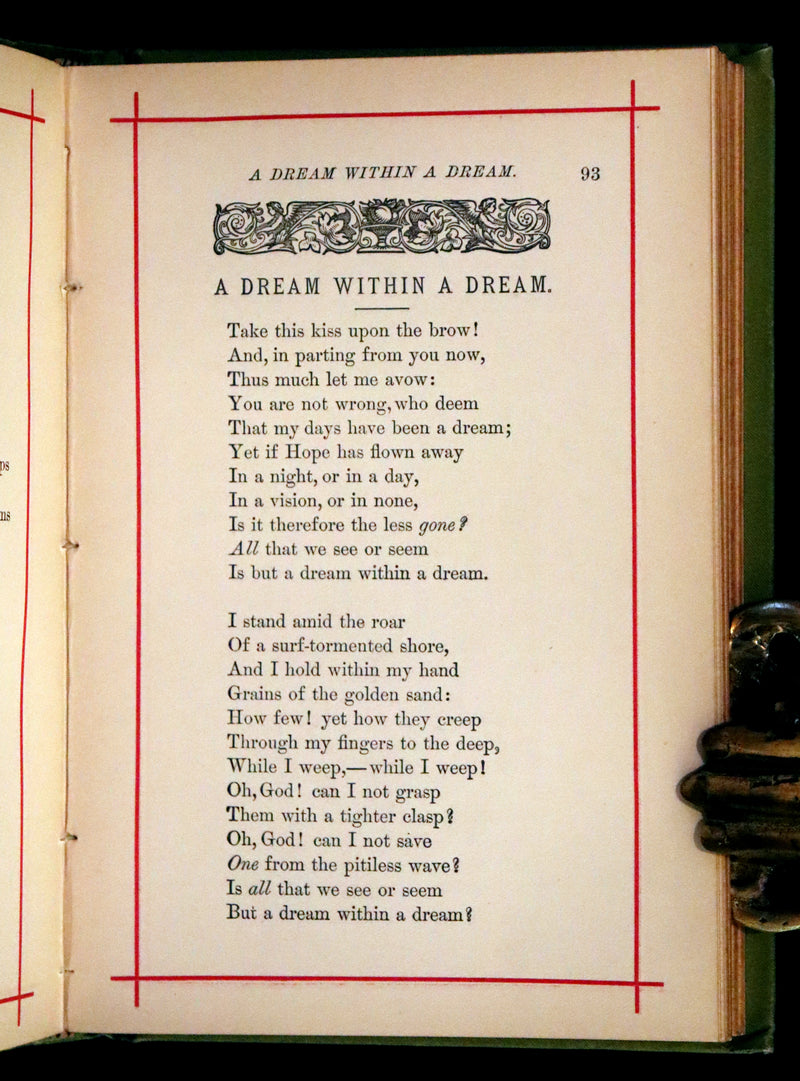 A DREAM WITHIN A DREAM. 93
A DREAM WITHIN A DREAM.
Take this kiss upon the brow!
And, in parting from you now,
Thus much let me avow:
You are not wrong, who deem
That my days have been a dream;
Yet if Hope has flown away
In a night, or in a day,
In a vision, or in none,
Is it therefore the less gone?
All that we see or seem
Is but a dream within a dream.

I stand amid the roar
Of a surf-tormented shore,
And I hold within my hand
Grains of the golden sand:
How few! yet how they creep
Through my fingers to the deep,
While I weep,—while I weep!
Oh, God! can I not grasp
Them with a tighter clasp?
Oh, God! can I not save
One from the pitiless wave?
Is all that we see or seem
But a dream within a dream?